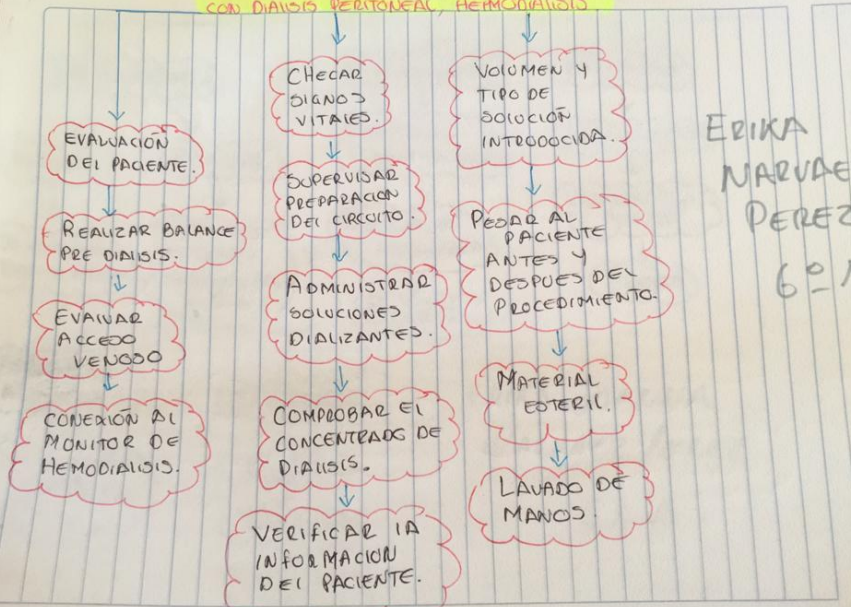 CON DIALISIS PERITONEAL, HEMODIALISIS
EVALUACIÓN
DEL PACIENTE.
REALIZAR BALANCE
PRE DIALISIS.
EVALUAR
ACCESO
VENOSO
CONEXIÓN AL
MONITOR DE
HEMODIALISIS.
CHECAR
SIGNOS
VITALES.
SUPERVISAR
PREPARACION
DEL CIRCUITO.
ADMINISTRAR
SOLUCIONES
DIALIZANTES.
COMPROBAR EL
CONCENTRADO DE
DIALISIS.
VERIFICAR LA
INFORMACION
DEL PACIENTE.
VOLUMEN Y
TIPO DE
SOLUCIÓN
INTRODOCIDA.
PESAR AL
PACIENTE
ANTES Y
DESPUES DEL
PROCEDIMIENTO.
MATERIAL
ESTERIL.
LAVADO DE
MANOS.
ERIKA
NARVAE
PEREZ
6º